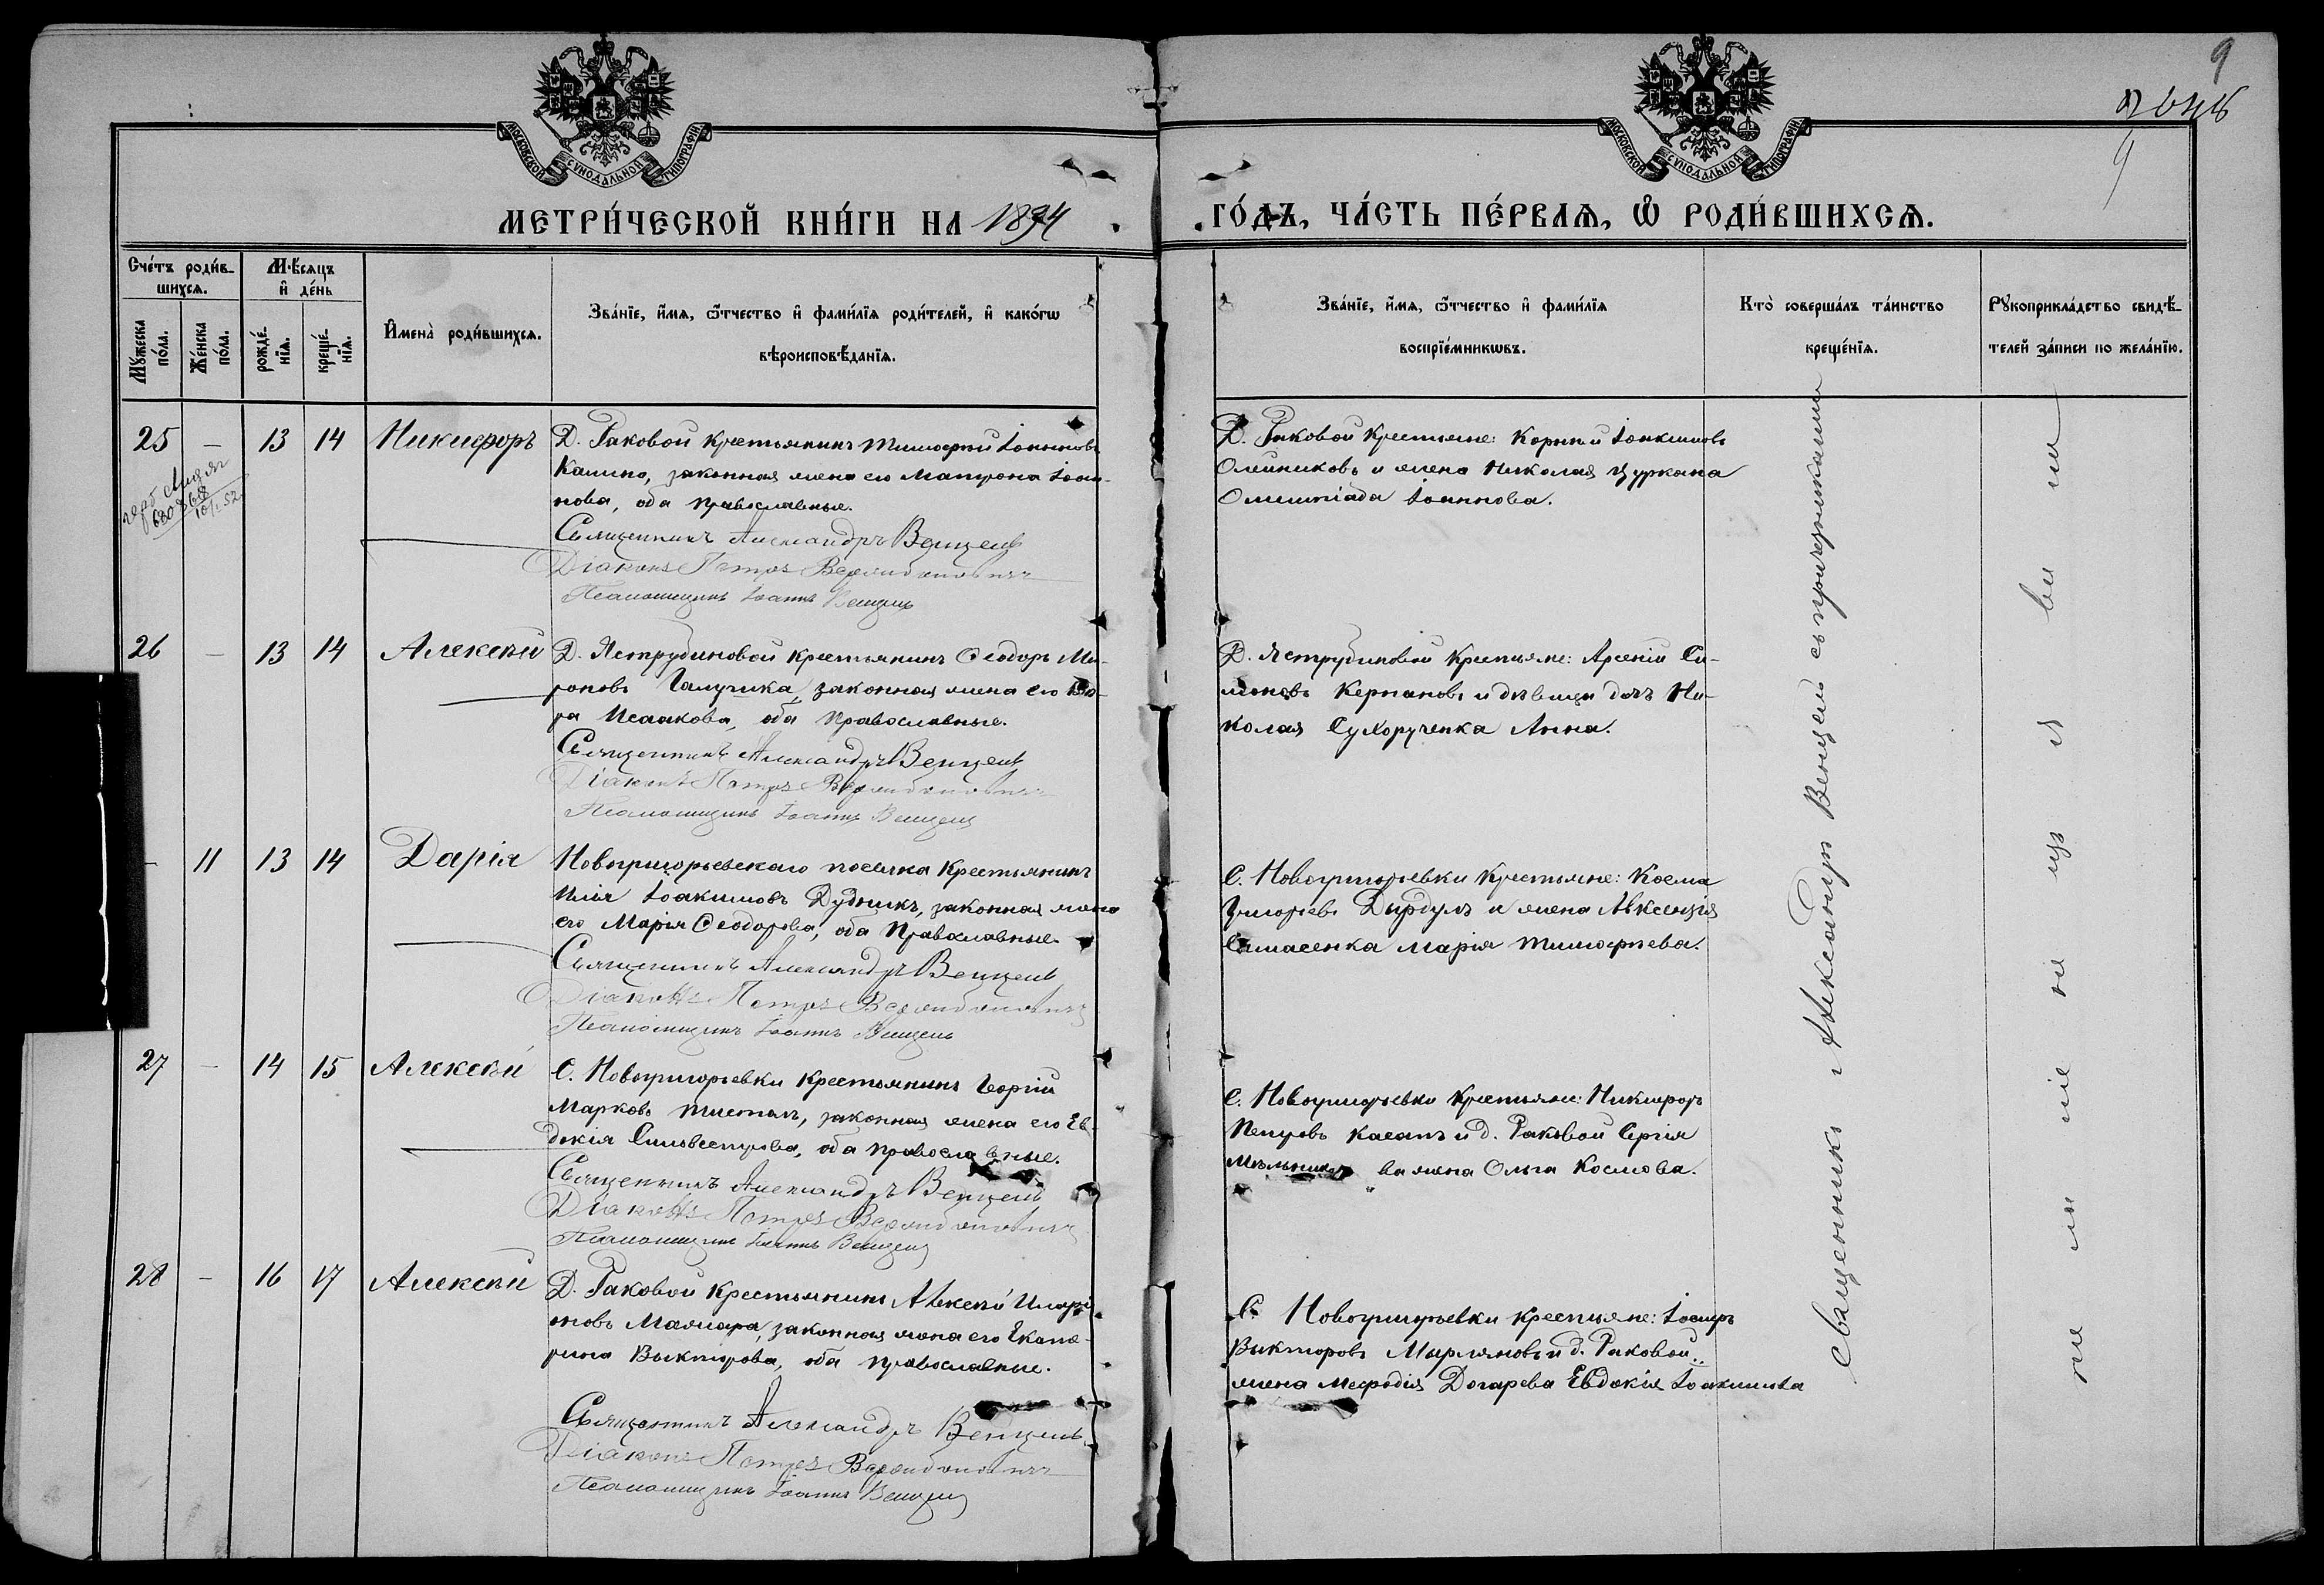 9
МОСКОВСКОЙ СѴНОДАЛЬНОЙ ТИПОГРАФІИ
МОСКОВСКОЙ СѴНОДАЛЬНОЙ ТИПОГРАФІИ
МЕТРИ́ЧЕСКОЙ КНИ́ГИ НА 1894
ГО́ДЪ, ЧА́СТЬ ПЕ́РВАѦ, Ѽ РОДИ́ВШИХСѦ.
Счéтъ роди́в-
шихсѧ.
Мꙋ́жеска по́ла.
Же́нска по́ла.
Мѣ́сѧцъ
и҆ де́нь
рожде́нїѧ.
креще́нїѧ.
И҆мена̀ роди́вшихсѧ.
Зва́нїе, и҆́мѧ, ѻ҆́тчество и҆ фами́лїѧ роди́телей, и҆ како́гѡ
вѣроисповѣ́данїѧ.
Зва́нїе, и҆́мѧ, ѻ҆́тчество и҆ фами́лїѧ
воспрїе́мникѡвъ.
Кто̀ соверша́лъ та́инство
креще́нїѧ.
Рꙋкоприкла́дство свидѣ́-
телей за́писи по жела́нїю.
25 – 13 14 Никифоръ
Д. Раковой крестьянинъ Тимофей Іоанновъ
Калино, законная жена его Матрона Іоан-
нова, оба православные.
Священникъ Александръ Венцель
Діаконъ Петръ
Псаломщикъ Іоаннъ Венцель
Д. Раковой крестьяне: Корнилій Іоакимовъ
Олиниковъ и жена Николая Цуркана
Олимпіада Іоаннова.
26 – 13 14 Алексѣй
Д. Яструбиновой крестьянинъ Ѳеодоръ Ми-
роновъ Галушка, законная жена его Ва-
ра Исаакова, оба православные.
Священникъ Александръ Венцель
Діаконъ Петръ
Псаломщикъ Іоаннъ Венцель
Д. Яструбиновой крестьяне: Арсеній Си-
моновъ Кернановъ и дѣвица дочь Ни-
колая Сухорученка Анна.
– 11 13 14 Дарія
Новогригорьевскаго поселка крестьянинъ
Илія Іоакимовъ Дудникъ, законная жена
его Марія Ѳеодорова, оба православные.
Священникъ Александръ Венцель
Діаконъ Петръ
Псаломщикъ Іоаннъ Венцель
С. Новогригорьевки крестьяне: Косма
Григорьевъ Дырдулъ и жена Авксентія
Самасенка Марія Тимофѣева.
27 – 14 15 Алексѣй
С. Новогригорьевки крестьянинъ Георгій
Марковъ Тисталъ, законная жена его Ев-
докія Сильвестрова, оба православные.
Священникъ Александръ Венцель
Діаконъ Петръ
Псаломщикъ Іоаннъ Венцель
С. Новогригорьевки крестьяне: Никифоръ
Петровъ Касапъ и д. Раковой Сергія
Мельникова жена Ольга Космова.
28 – 16 17 Алексѣй
Д. Раковой крестьянинъ Алексѣй Иларі-
оновъ Маямара, законная жена его Екате-
рина Викторова, оба православные.
Священникъ Александръ Венцель
Діаконъ Петръ
Псаломщикъ Іоаннъ Венцель
С. Новогригорьевки крестьяне: Іосифъ
Викторовъ Мырляновъ и д. Раковой
жена Мефодія Догарева Евдокія Іоакимова
Священникъ Александръ Венцель съ причетниками